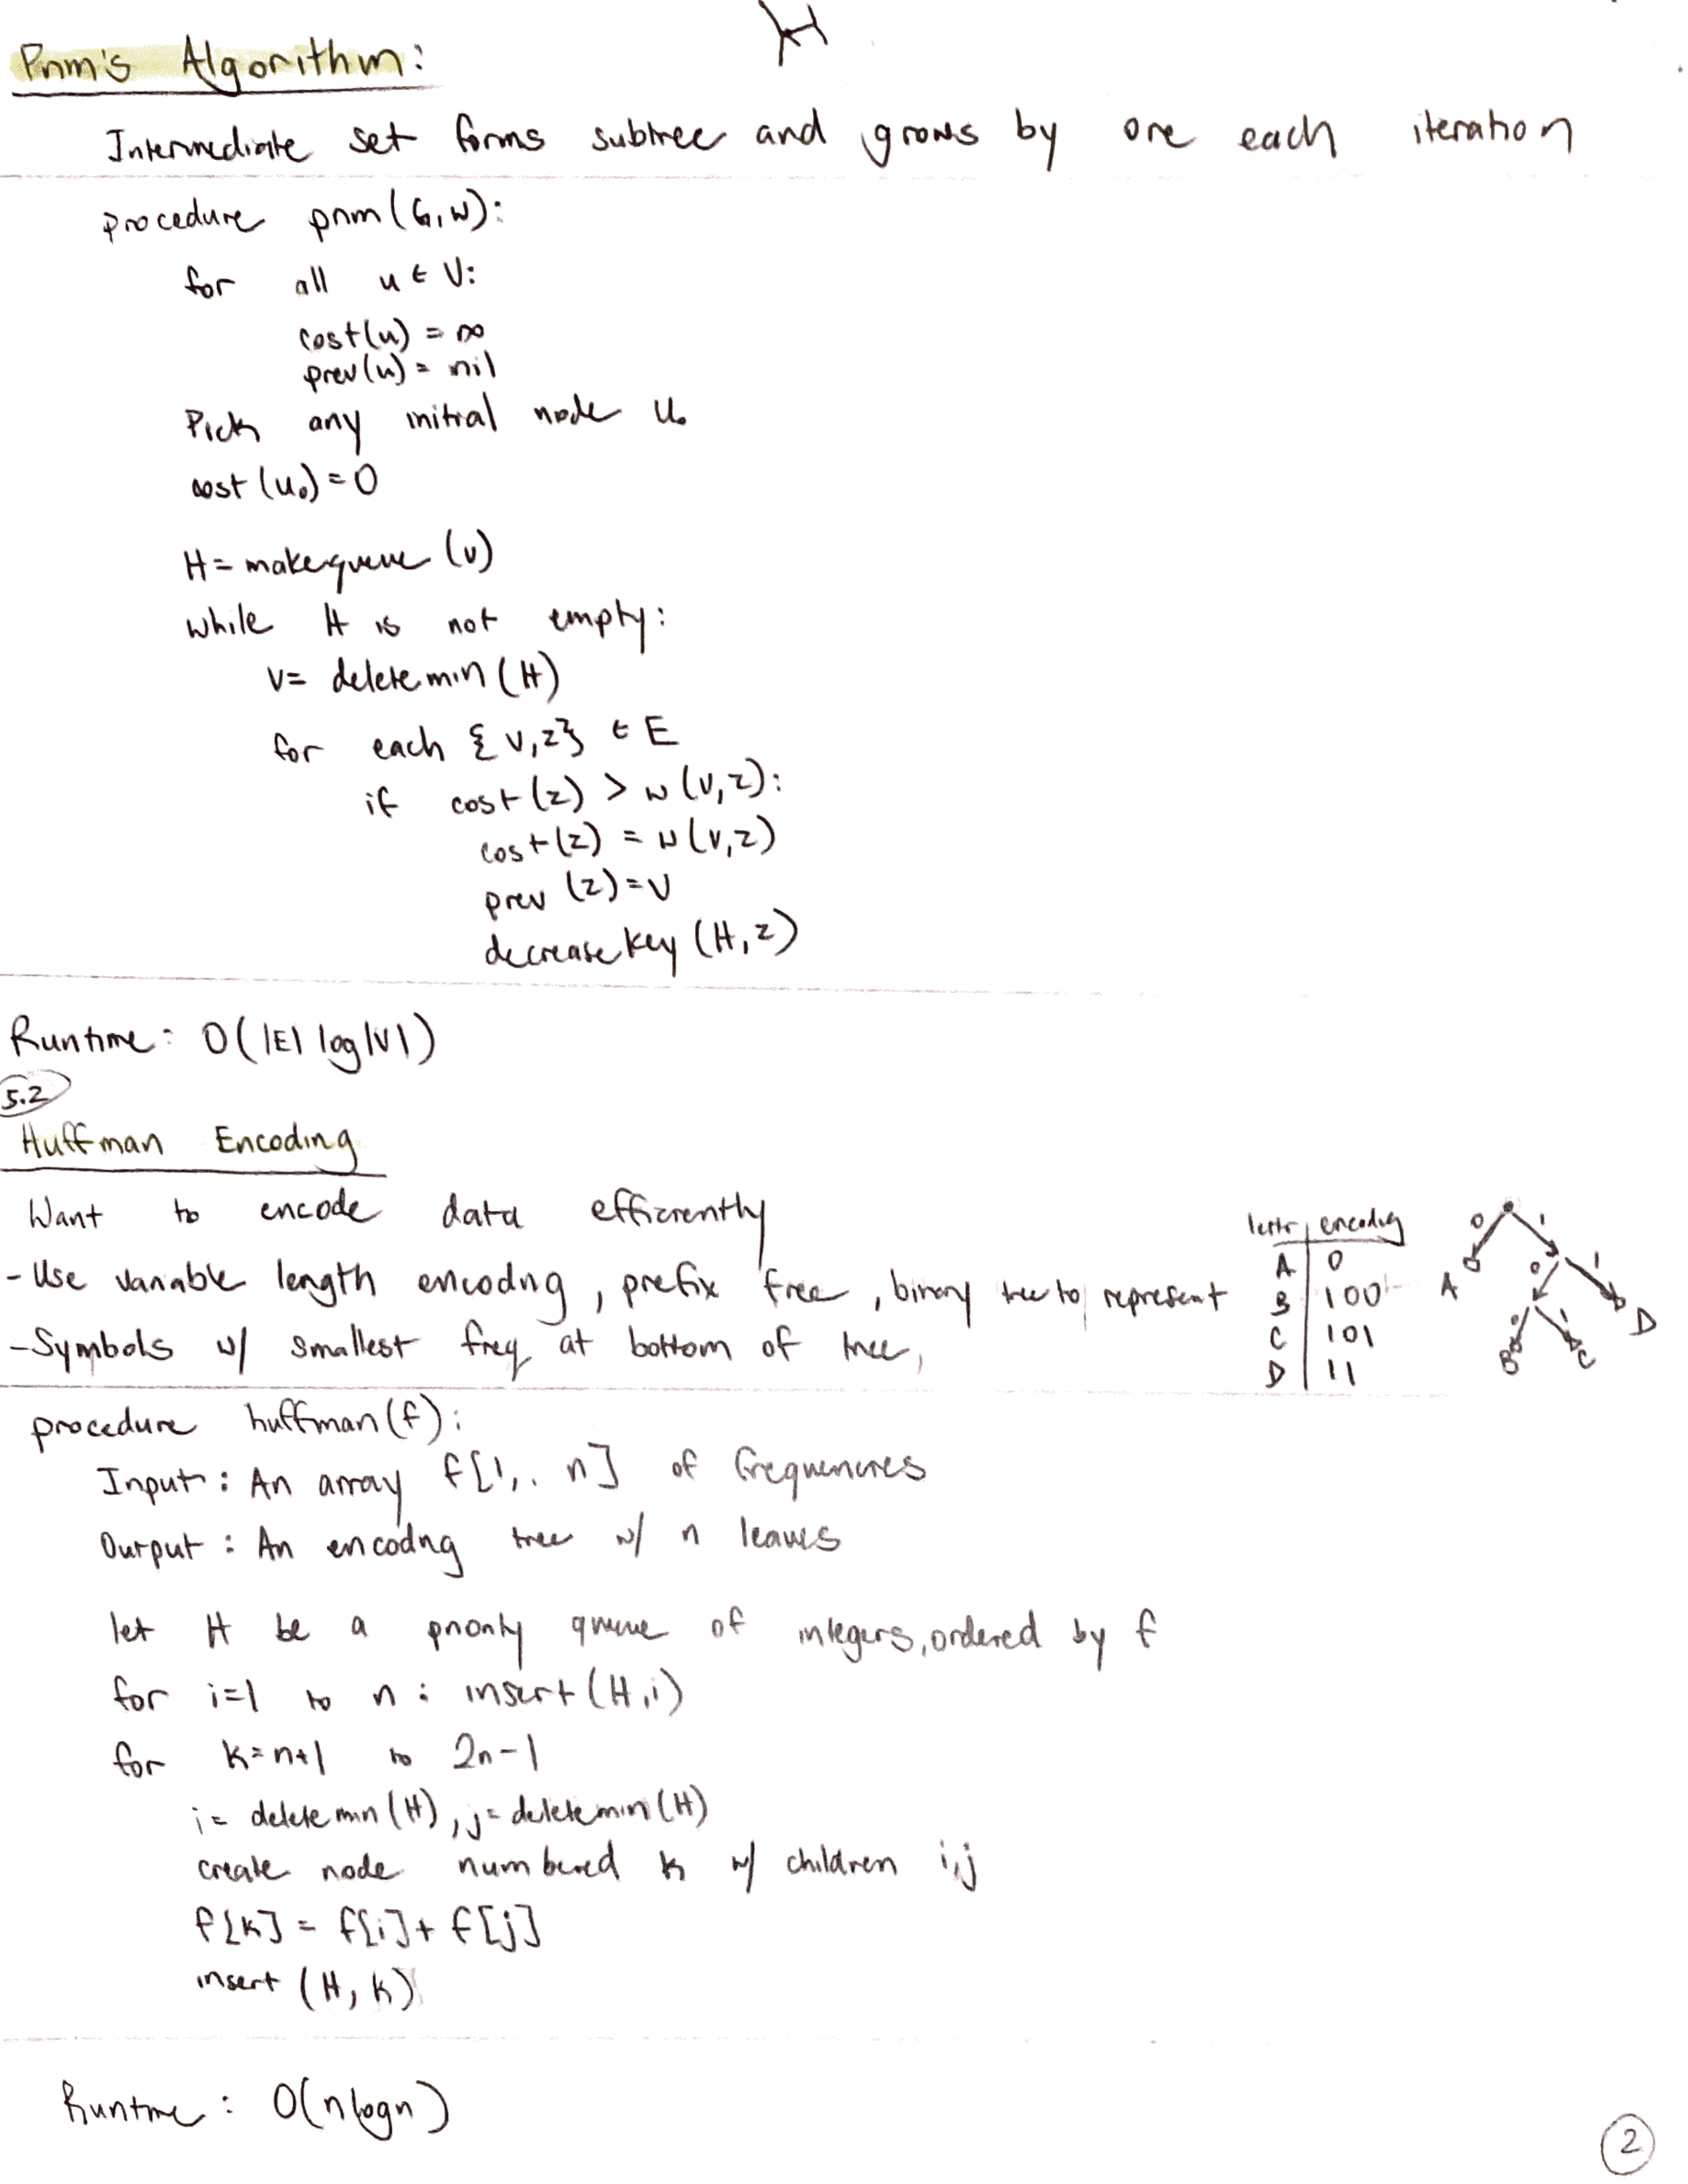 Prim's Algorithm:
Intermediate set forms subtree and grows by one each iteration
procedure prim(G,w):
for all u ∈ V:
cost(u) = ∞
prev(u) = nil
Pick any initial node u₀
cost(u₀) = 0
H = makequeue(v)
while H is not empty:
v = deletemin(H)
for each {v,z} ∈ E
if cost(z) > w(v,z):
cost(z) = w(v,z)
prev(z) = v
decreasekey(H,z)
Runtime: O(|E| log|V|)
5.2
Huffman Encoding
Want to encode data efficiently
- Use variable length encoding, prefix free, binary tree to represent
- Symbols w/ smallest freq at bottom of tree,
letter encoding
A 0
B 100
C 101
D 11
0 1
A 0 1
0 1 D
B C
procedure huffman(f):
Input: An array f[1,..n] of frequencies
Output: An encoding tree w/ n leaves
let H be a priority queue of integers, ordered by f
for i=1 to n: insert(H,i)
for k=n+1 to 2n-1
i = deletemin(H), j = deletemin(H)
create node numbered k w/ children i,j
f[k] = f[i] + f[j]
insert (H, k)
Runtime: O(n log n)
2